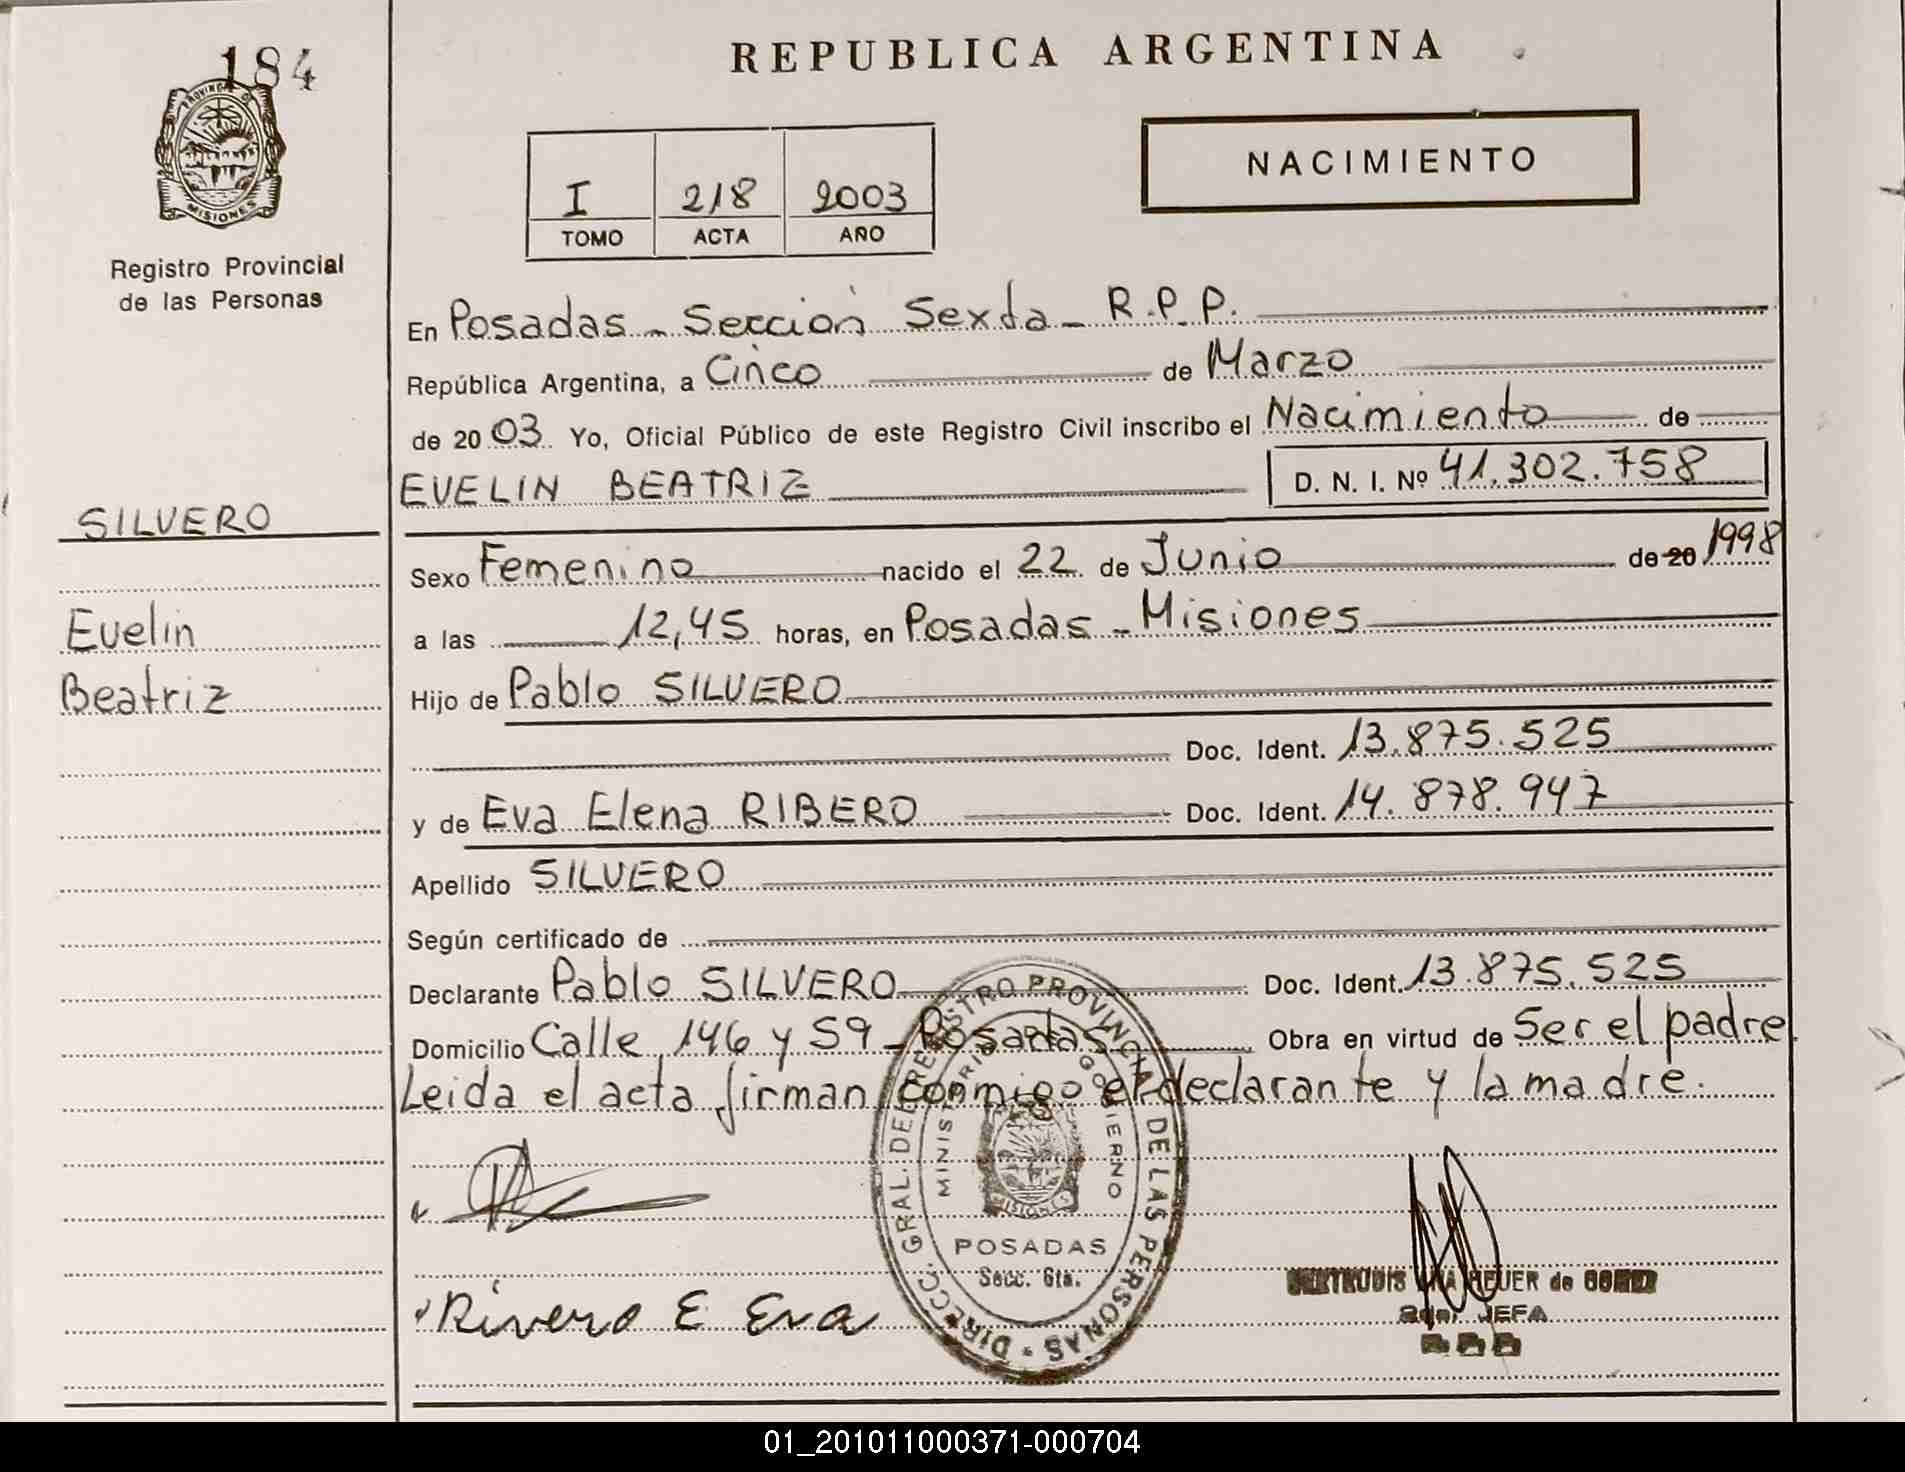 184
PROVINCIA DE
MISIONES
Registro Provincial
de las Personas
SILVERO
Evelin
Beatriz
REPUBLICA ARGENTINA
NACIMIENTO
I 218 2003
TOMO ACTA AÑO
En Posadas - Sección Sexta - R.P.P.
República Argentina, a Cinco de Marzo
de 20 03 Yo, Oficial Público de este Registro Civil inscribo el Nacimiento de
EVELIN BEATRIZ D. N. I. Nº 41.302.758
Sexo Femenino nacido el 22 de Junio de 20 1998
a las 12,45 horas, en Posadas - Misiones
Hijo de Pablo SILVERO
Doc. Ident. 13.875.525
y de Eva Elena RIBERO Doc. Ident. 14.878.947
Apellido SILVERO
Según certificado de
Declarante Pablo SILVERO Doc. Ident. 13.875.525
Domicilio Calle 146 y 59 - Posadas Obra en virtud de Ser el padre
Leida el acta firman conmigo el declarante y la madre.
DIRECC. GRAL. DEL REGISTRO PROVINCIAL DE LAS PERSONAS
MINISTERIO DE GOBIERNO
MISIONES
POSADAS
Secc. 6ta.
Rivero E Eva
REUER de
2da. JEFA
01_201011000371-000704